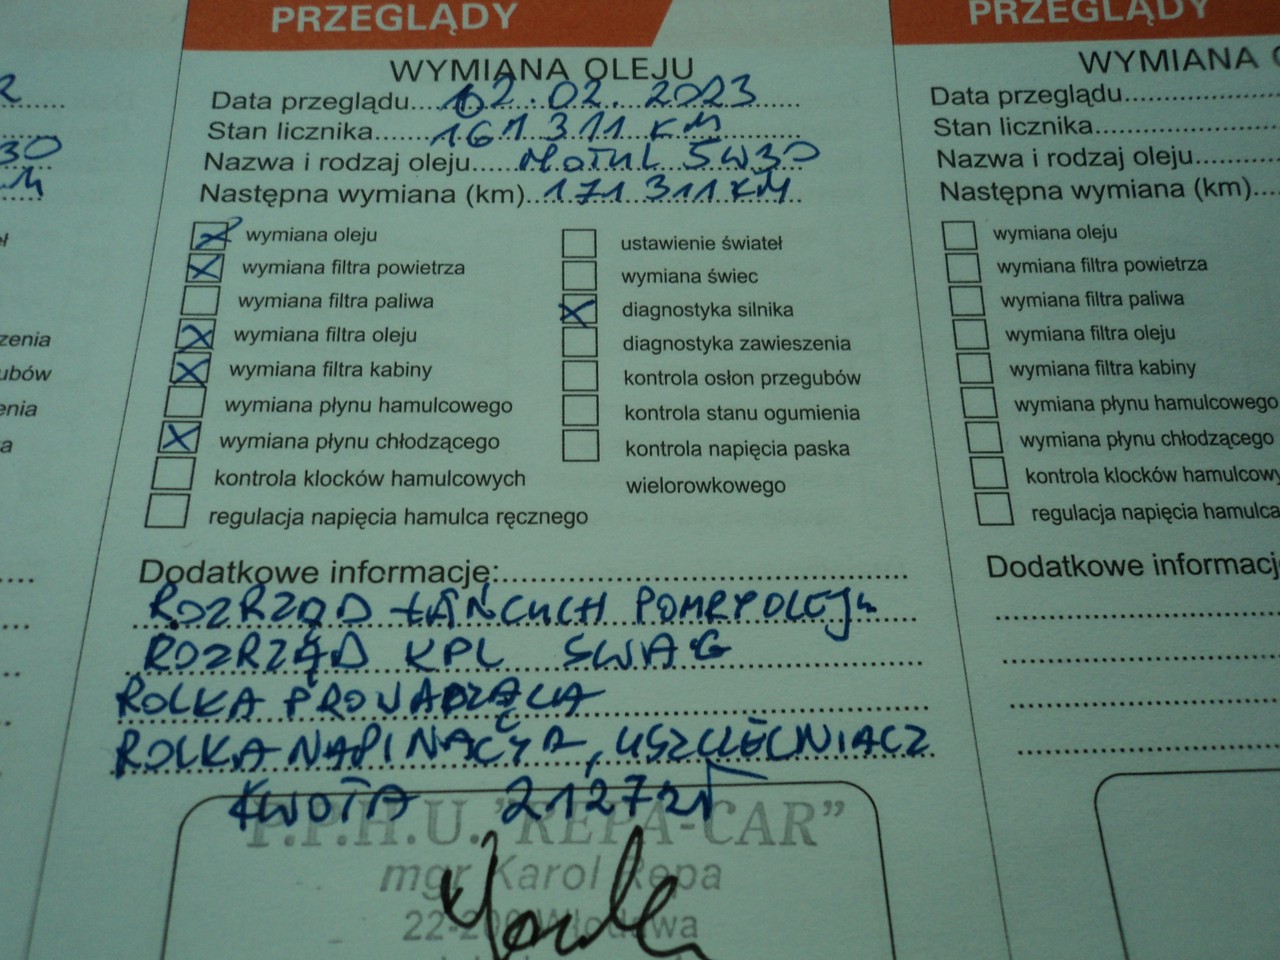 PRZEGLĄDY
WYMIANA OLEJU
Data przeglądu....02.02.2023
Stan licznika....161 311 KM
Nazwa i rodzaj oleju....MOTUL 5W30
Następna wymiana (km)...171 311 KM
wymiana oleju
wymiana filtra powietrza
wymiana filtra paliwa
wymiana filtra oleju
wymiana filtra kabiny
wymiana płynu hamulcowego
wymiana płynu chłodzącego
kontrola klocków hamulcowych
regulacja napięcia hamulca ręcznego
ustawienie świateł
wymiana świec
diagnostyka silnika
diagnostyka zawieszenia
kontrola osłon przegubów
kontrola stanu ogumienia
kontrola napięcia paska
wielorowkowego
Dodatkowe informacje:
ROZRZĄD ŁAŃCUCH POMPY OLEJU
ROZRZĄD KPL SWAG
ROLKA PROWADZĄCA
ROLKA NAPINACZA, USZCZELNIACZ
KWOTA 2127 zł
P.P.H.U. "REPA-CAR"
mgr Karol Repa
22-200 Włodawa
PRZEGLĄDY
WYMIANA
Data przeglądu
Stan licznika
Nazwa i rodzaj oleju
Następna wymiana (km)
wymiana oleju
wymiana filtra powietrza
wymiana filtra paliwa
wymiana filtra oleju
wymiana filtra kabiny
wymiana płynu hamulcowego
wymiana płynu chłodzącego
kontrola klocków hamulcowy
regulacja napięcia hamulca
Dodatkowe informacj
30
zenia
ubów
enia
a